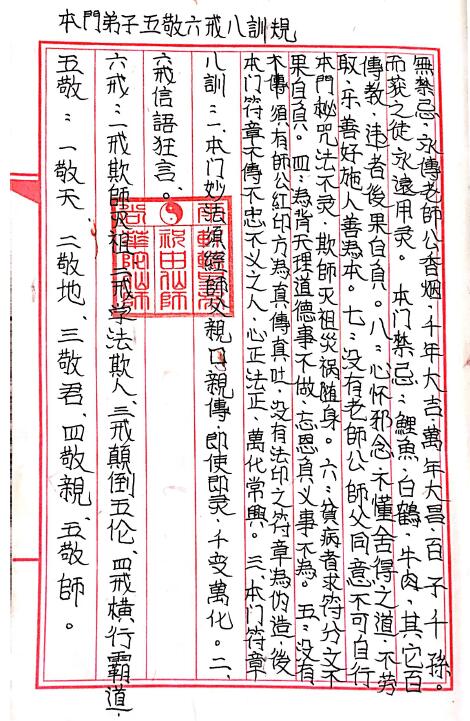 本門弟子五敬六戒八訓規
五敬：一敬天、二敬地、三敬君、四敬親、五敬師。
六戒：一戒欺師灭祖、二戒学法欺人、三戒顛倒五伦、四戒横行霸道、
六戒信語狂言。
八訓：一、本门妙法須經師父親口親傳，即使即灵，千变萬化。二、
本门符章不傳不忠不义之人，心正法正，萬代常興。三、本门符章
不傳須有師公红印方為真傳真吐，没有法印之符章為伪造，後
果自負。四：為背天理道德事不做，忘恩負义事不為。五：没有
本門秘咒法不灵，欺師灭祖災祸随身。六：貧病者求符分文不
取，乐善好施人善為本。七：没有老師公師父同意不可自行
傳教，违者後果自負。八：心怀邪念、不懂舍得之道、不劳
而获之徒永遠用灵。本门禁忌：鯉魚、白鶴、牛肉，其它百
無禁忌，永傳老師公香烟，千年大吉，萬年大昌，百子千孫。
祝由仙師